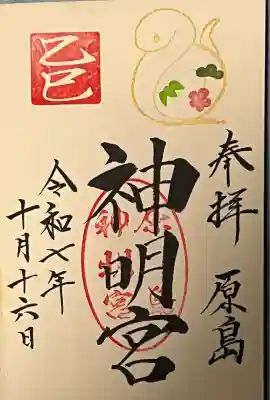 奉拝 原島
神明宮
令和七年
十月十六日
乙巳